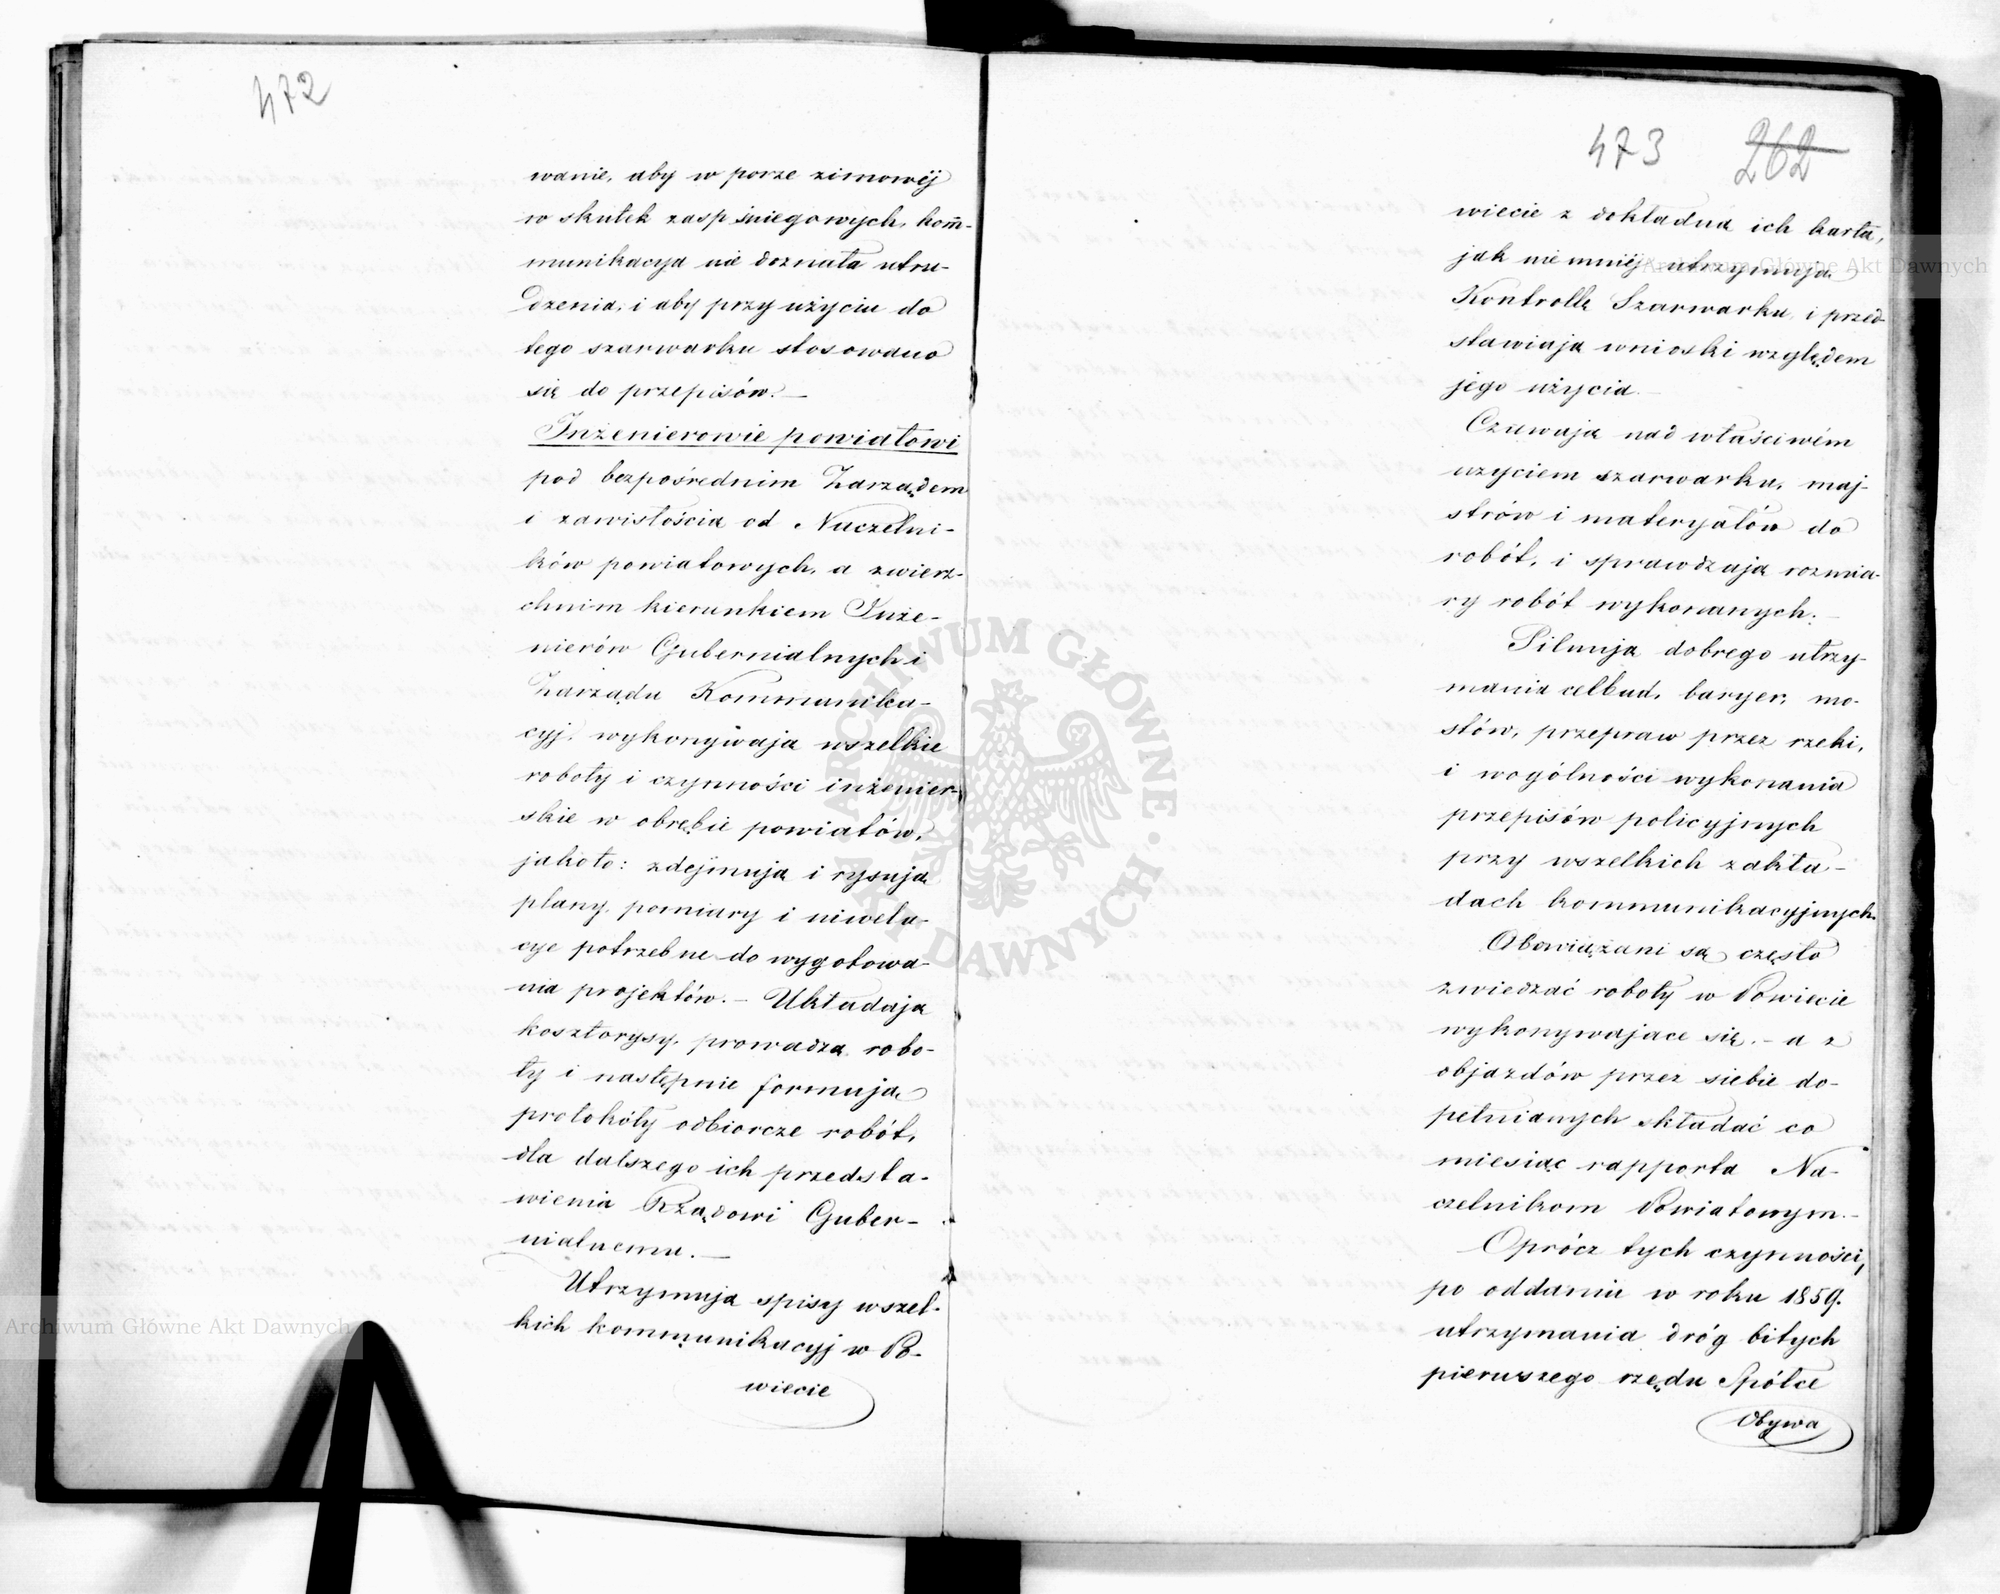 472
wanie, aby w porze zimowéj
w skutek zasp śniegowych, kom̄-
munikacya nie doznała utru-
dzenia, i aby przy użyciu do
tego szarwarku stosowano
się do przepisów. —
Inżenierowie powiatowi
pod bezpośrednim Zarządem
i zawisłością od Naczelni-
ków powiatowych, a zwierz-
chnim kierunkiem Inże-
nierów Gubernialnych i
Zarządu Kommunika-
cyj, wykonywają wszelkie
roboty i czynności inżenier-
skie w obrębie powiatów,
jakoto: zdejmują i rysują
plany, pomiary i niwela-
cye potrzebne do wygotowa-
nia projektów. — Układają
kosztorysy, prowadzą robo-
ty i następnie formują
protokóły odbiorcze robót,
dla dalszego ich przedsta-
wienia Rządowi Guber-
nialnemu. —
Utrzymują spisy wszel-
kich kommunikacyj w Po-
wiecie
473 262
wiecie z dokładną ich kartą,
jak niemniéj utrzymują
Kontrollę Szarwarku, i przed-
stawiają wnioski względem
jego użycia. —
Czuwają nad właściwém
użyciem szarwarku, maj-
strów i materyałów do
robót, i sprawdzają rozmia-
ry robót wykonanych. —
Pilnują dobrego utrzy-
mania celbud, baryer, mo-
stów, przepraw przez rzeki,
i wogólności wykonania
przepisów policyjnych
przy wszelkich zakła-
dach kommunikacyjnych.
Obowiązani są często
zwiedzać roboty w Powiecie
wykonywające się. — a z
objazdów przez siebie do-
pełnianych składać co
miesiąc rapporta Na-
czelnikom Powiatowym. —
Oprócz tych czynności,
po oddaniu w roku 1859.
utrzymania dróg bitych
pierwszego rzędu Spółce
Obywa
ARCHIWUM GŁÓWNE AKT DAWNYCH
Archiwum Główne Akt Dawnych
Archiwum Główne Akt Dawnych